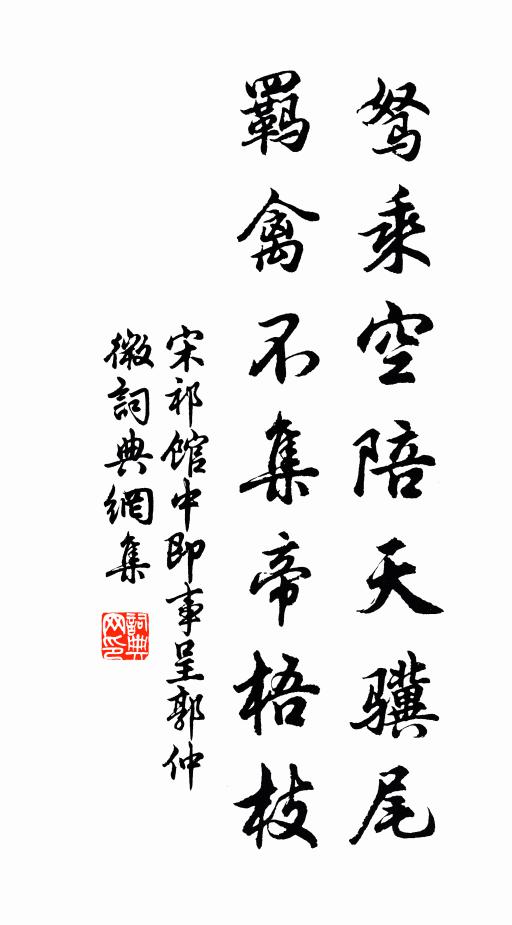 驽乘空陪天骥尾
羁禽不集帝梧枝
宋祁馆中即事呈郭仲
微詞典網集
詞典网印